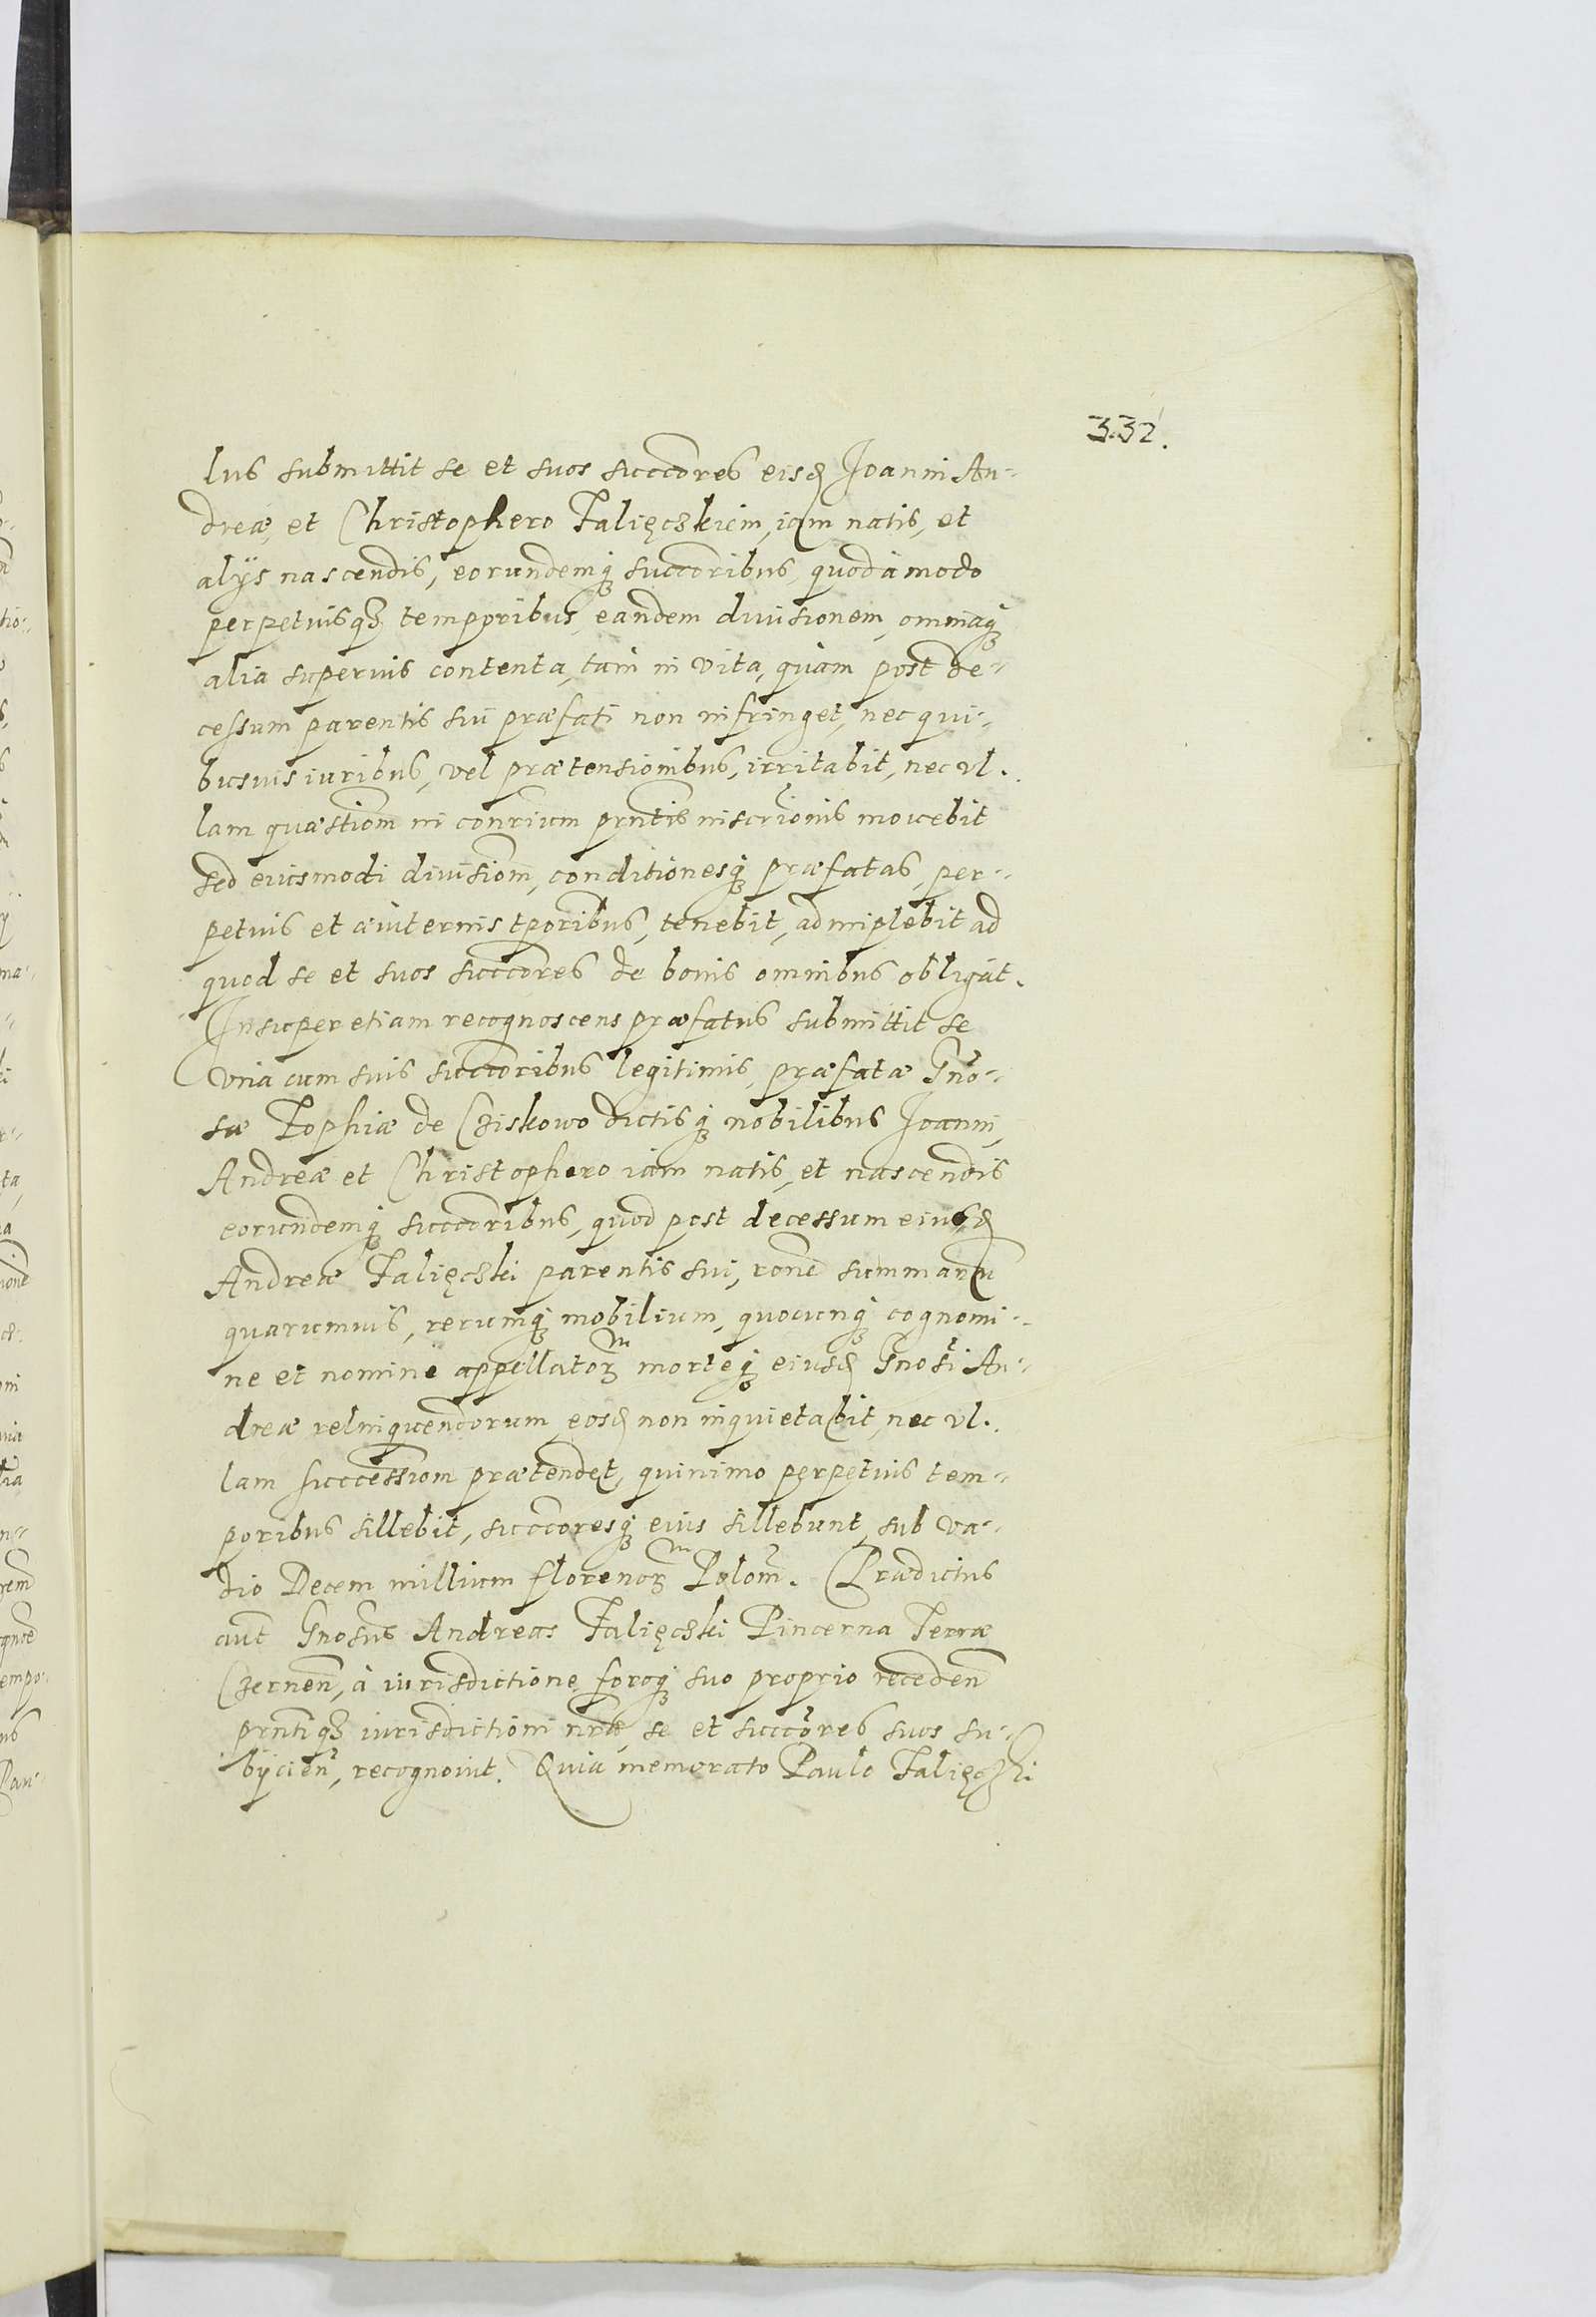 332.
lus submittit se et suos succores eisd Joanni An-
dreæ, et Christophero Falięczkiem, iam natis, et
alÿs nascendis, eorundemq succoribus, quod à modo
perpetuisq temporibus, eandem divisionem, omniaq
alia superius contenta, tam in vita, quam post de-
cessum parentis sui præfati non infringet, nec qui-
busuis iuribus, vel prætensionibus, irritabit, nec ul.
lam quæstiom in conrium prntis inscrionis mouebit
sed eiusmodi divisiom, conditionesq præfatas, per-
petuis et æuiternis tporibus, tenebit, adimplebit ad
quod se et suos succores de bonis omnibus obligat.
Insuper etiam recognoscens præfatus submittit se
vna cum suis succoribus legitimis, præfatæ Gno-
sæ Zophiæ de Cziskowo dictisq nobilibus Joanni,
Andreæ et Christophero iam natis, et nascendis
eorundemq succoribus, quod post decessum eiusd
Andreæ Falięczki parentis sui, rone summaru
quarumuis, rerumq mobilium, quocunq cognomi-
ne et nomine appellator morteq eiusd Gnosi An-
dreæ relinquendorum, eosd non inquietabit, nec ul.
lam successiom prætendet, quinimo perpetuis tem-
poribus sillebit, succoresq eius sillebunt, sub va-
dio Decem millium florenor Polom. Prædictus
aut Gnosus Andreas Falięczki Pincerna Terræ
Czernen, à iurisdictione foroq suo proprio receden
prntiq iurisdictioni nræ, se et succores suos su-
bÿcien, recognouit. Quia memorato Paulo Falięczki